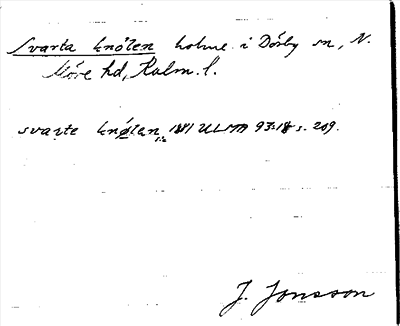 Svarta knölen holme i Dörby sn, N.
Möre hd, Kalm. l.
svarte knølen, 1881 ULMA 93:18 s. 209.
J. Jonsson